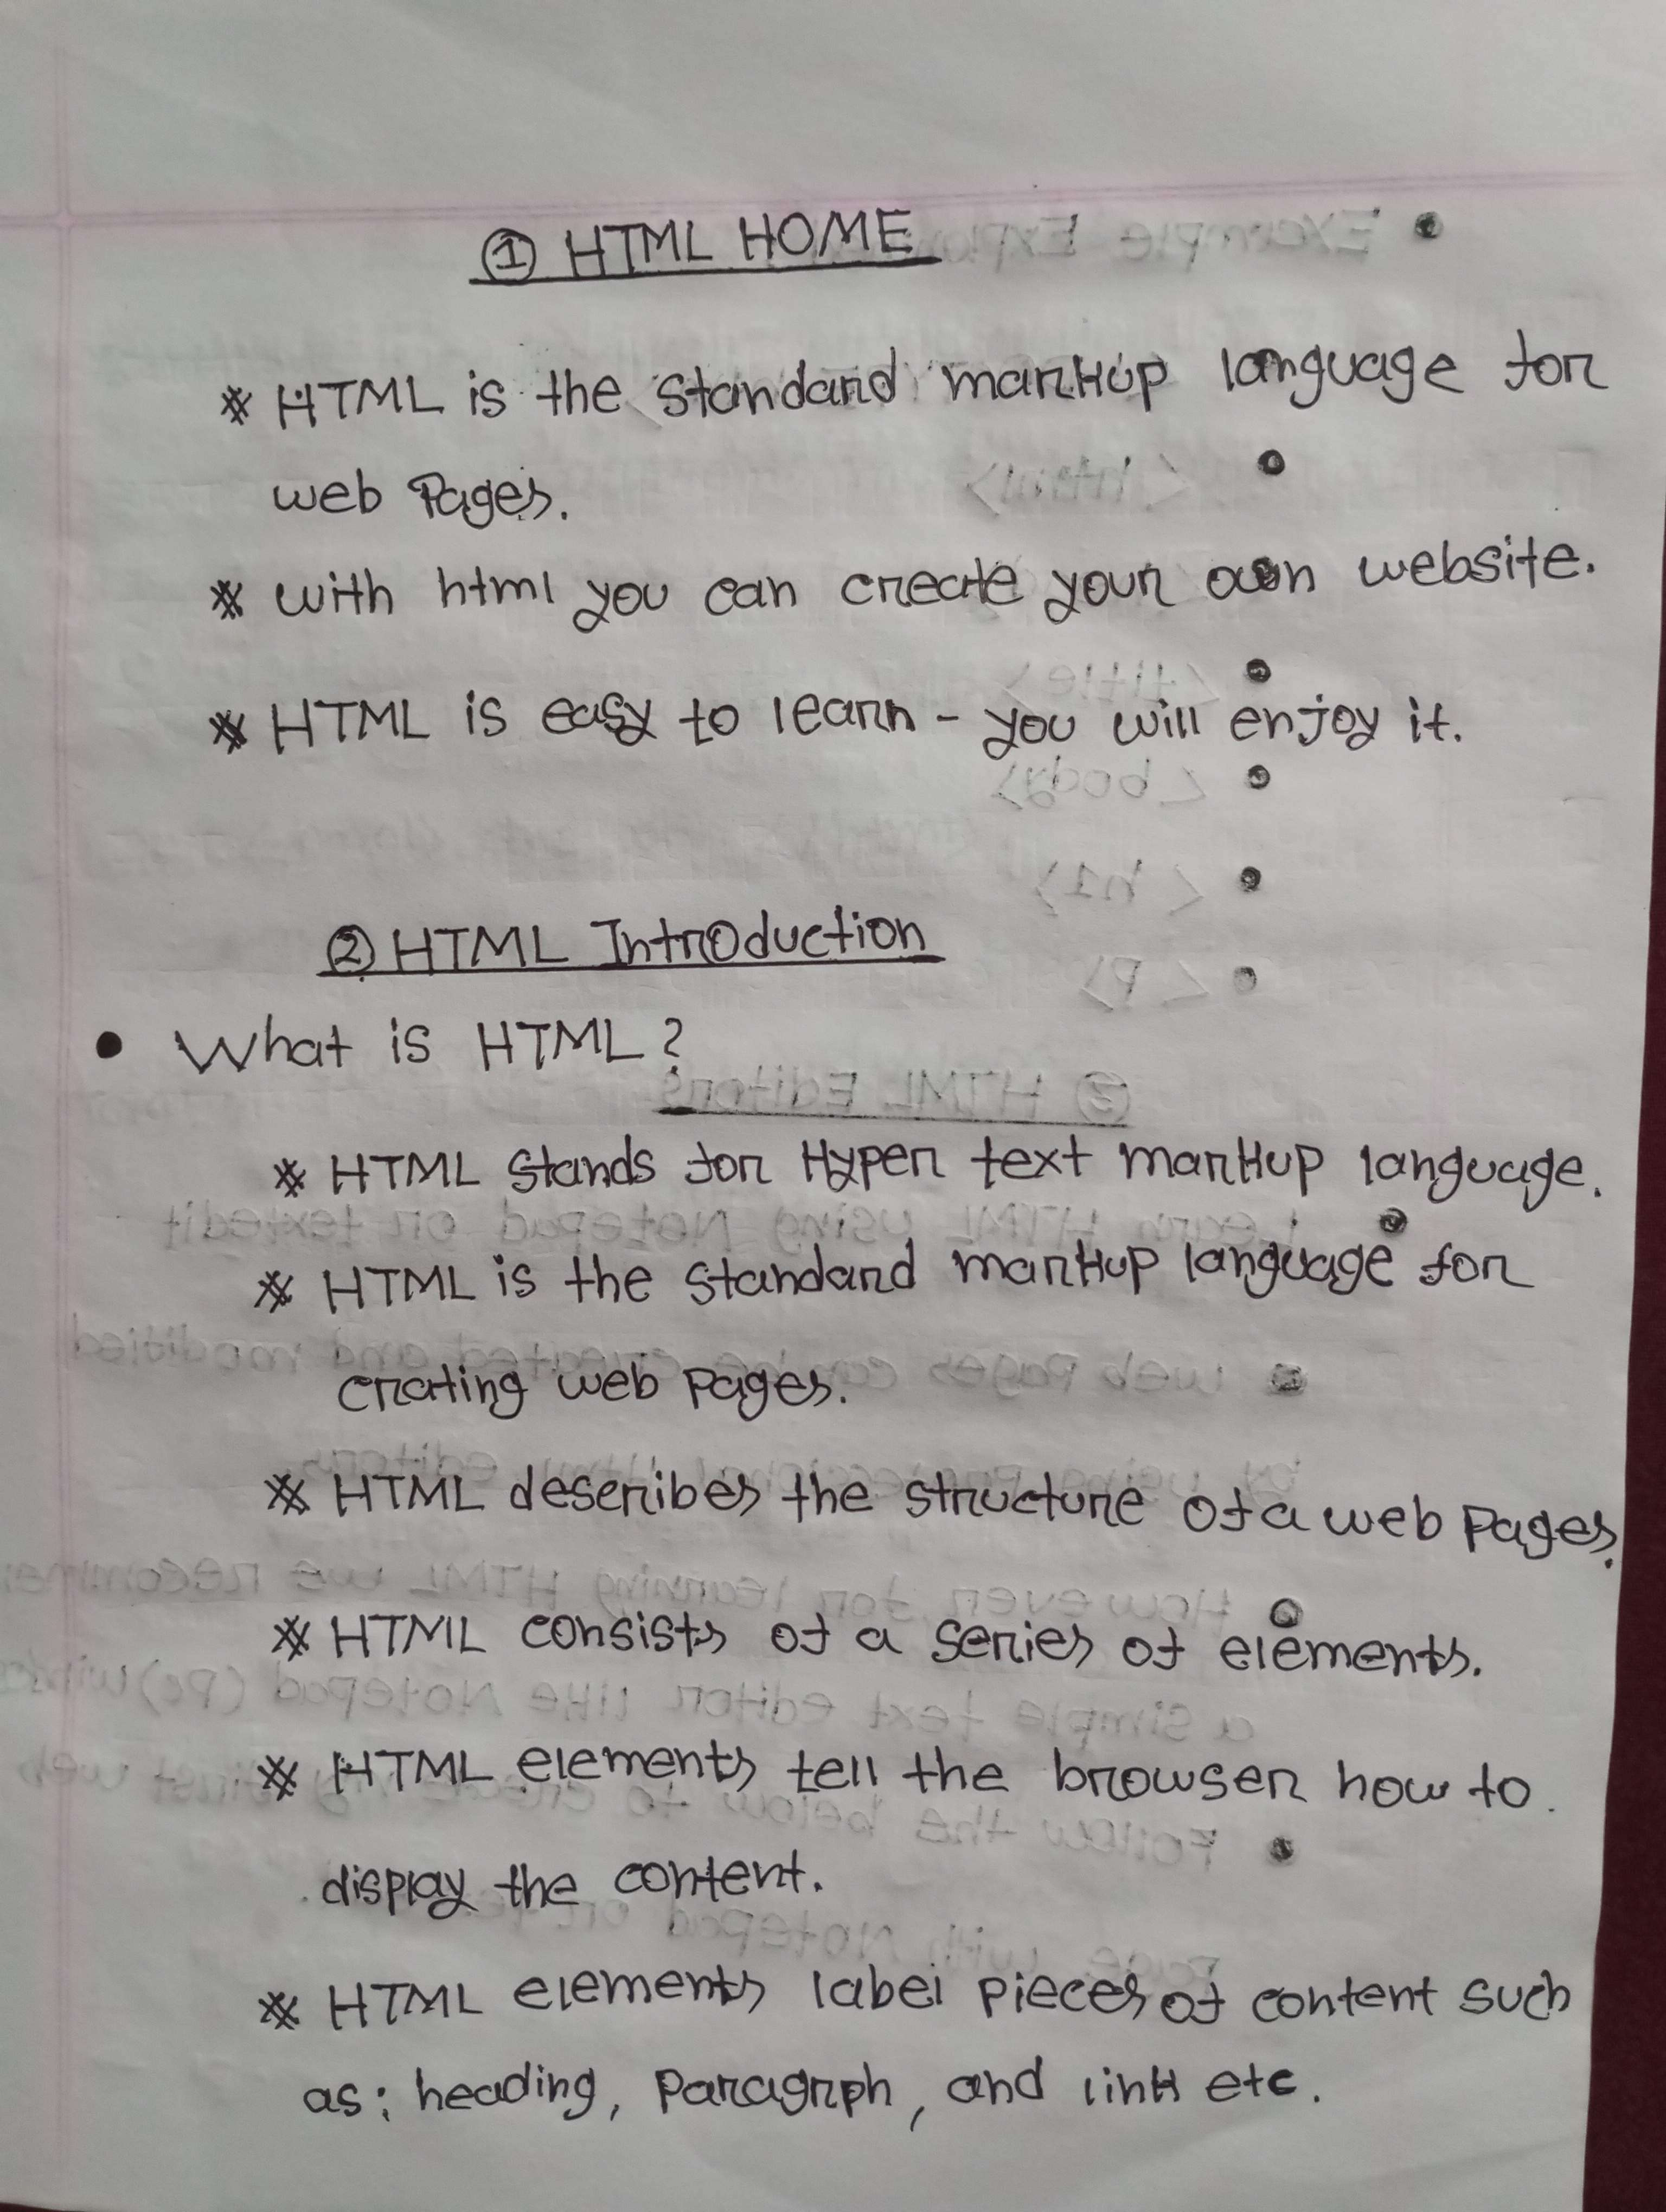 ① HTML HOME
* HTML is the standard markup language for
web Pages.
* with html you can create your own website.
* HTML is easy to learn - you will enjoy it.
② HTML Introduction
• What is HTML?
* HTML stands for Hyper text markup language.
* HTML is the standard markup language for
crating web pages.
* HTML describes the structure of a web pages.
* HTML consists of a series of elements.
* HTML elements tell the browser how to
display the content.
* HTML elements label pieces of content such
as; heading, Paragrph, and link etc.